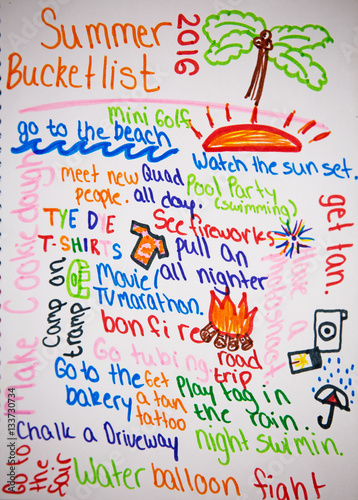 Summer
Bucketlist
2016
mini Golf
go to the beach
watch the sun set.
meet new
people.
Quad
all day.
Pool Party
(swimming)
get tan.
Make Cookie dough
TYE DIE
T-SHIRTS
See fireworks
pull an
all nighter
Camp on
tramp
Movie/
TV marathon.
bonfire
road
trip
Go tubing
Go to the
bakery
Get
a tan
tattoo
Play tag in
the rain.
Chalk a Driveway
night swimin.
Go to
the
fair
Water balloon fight
133730734